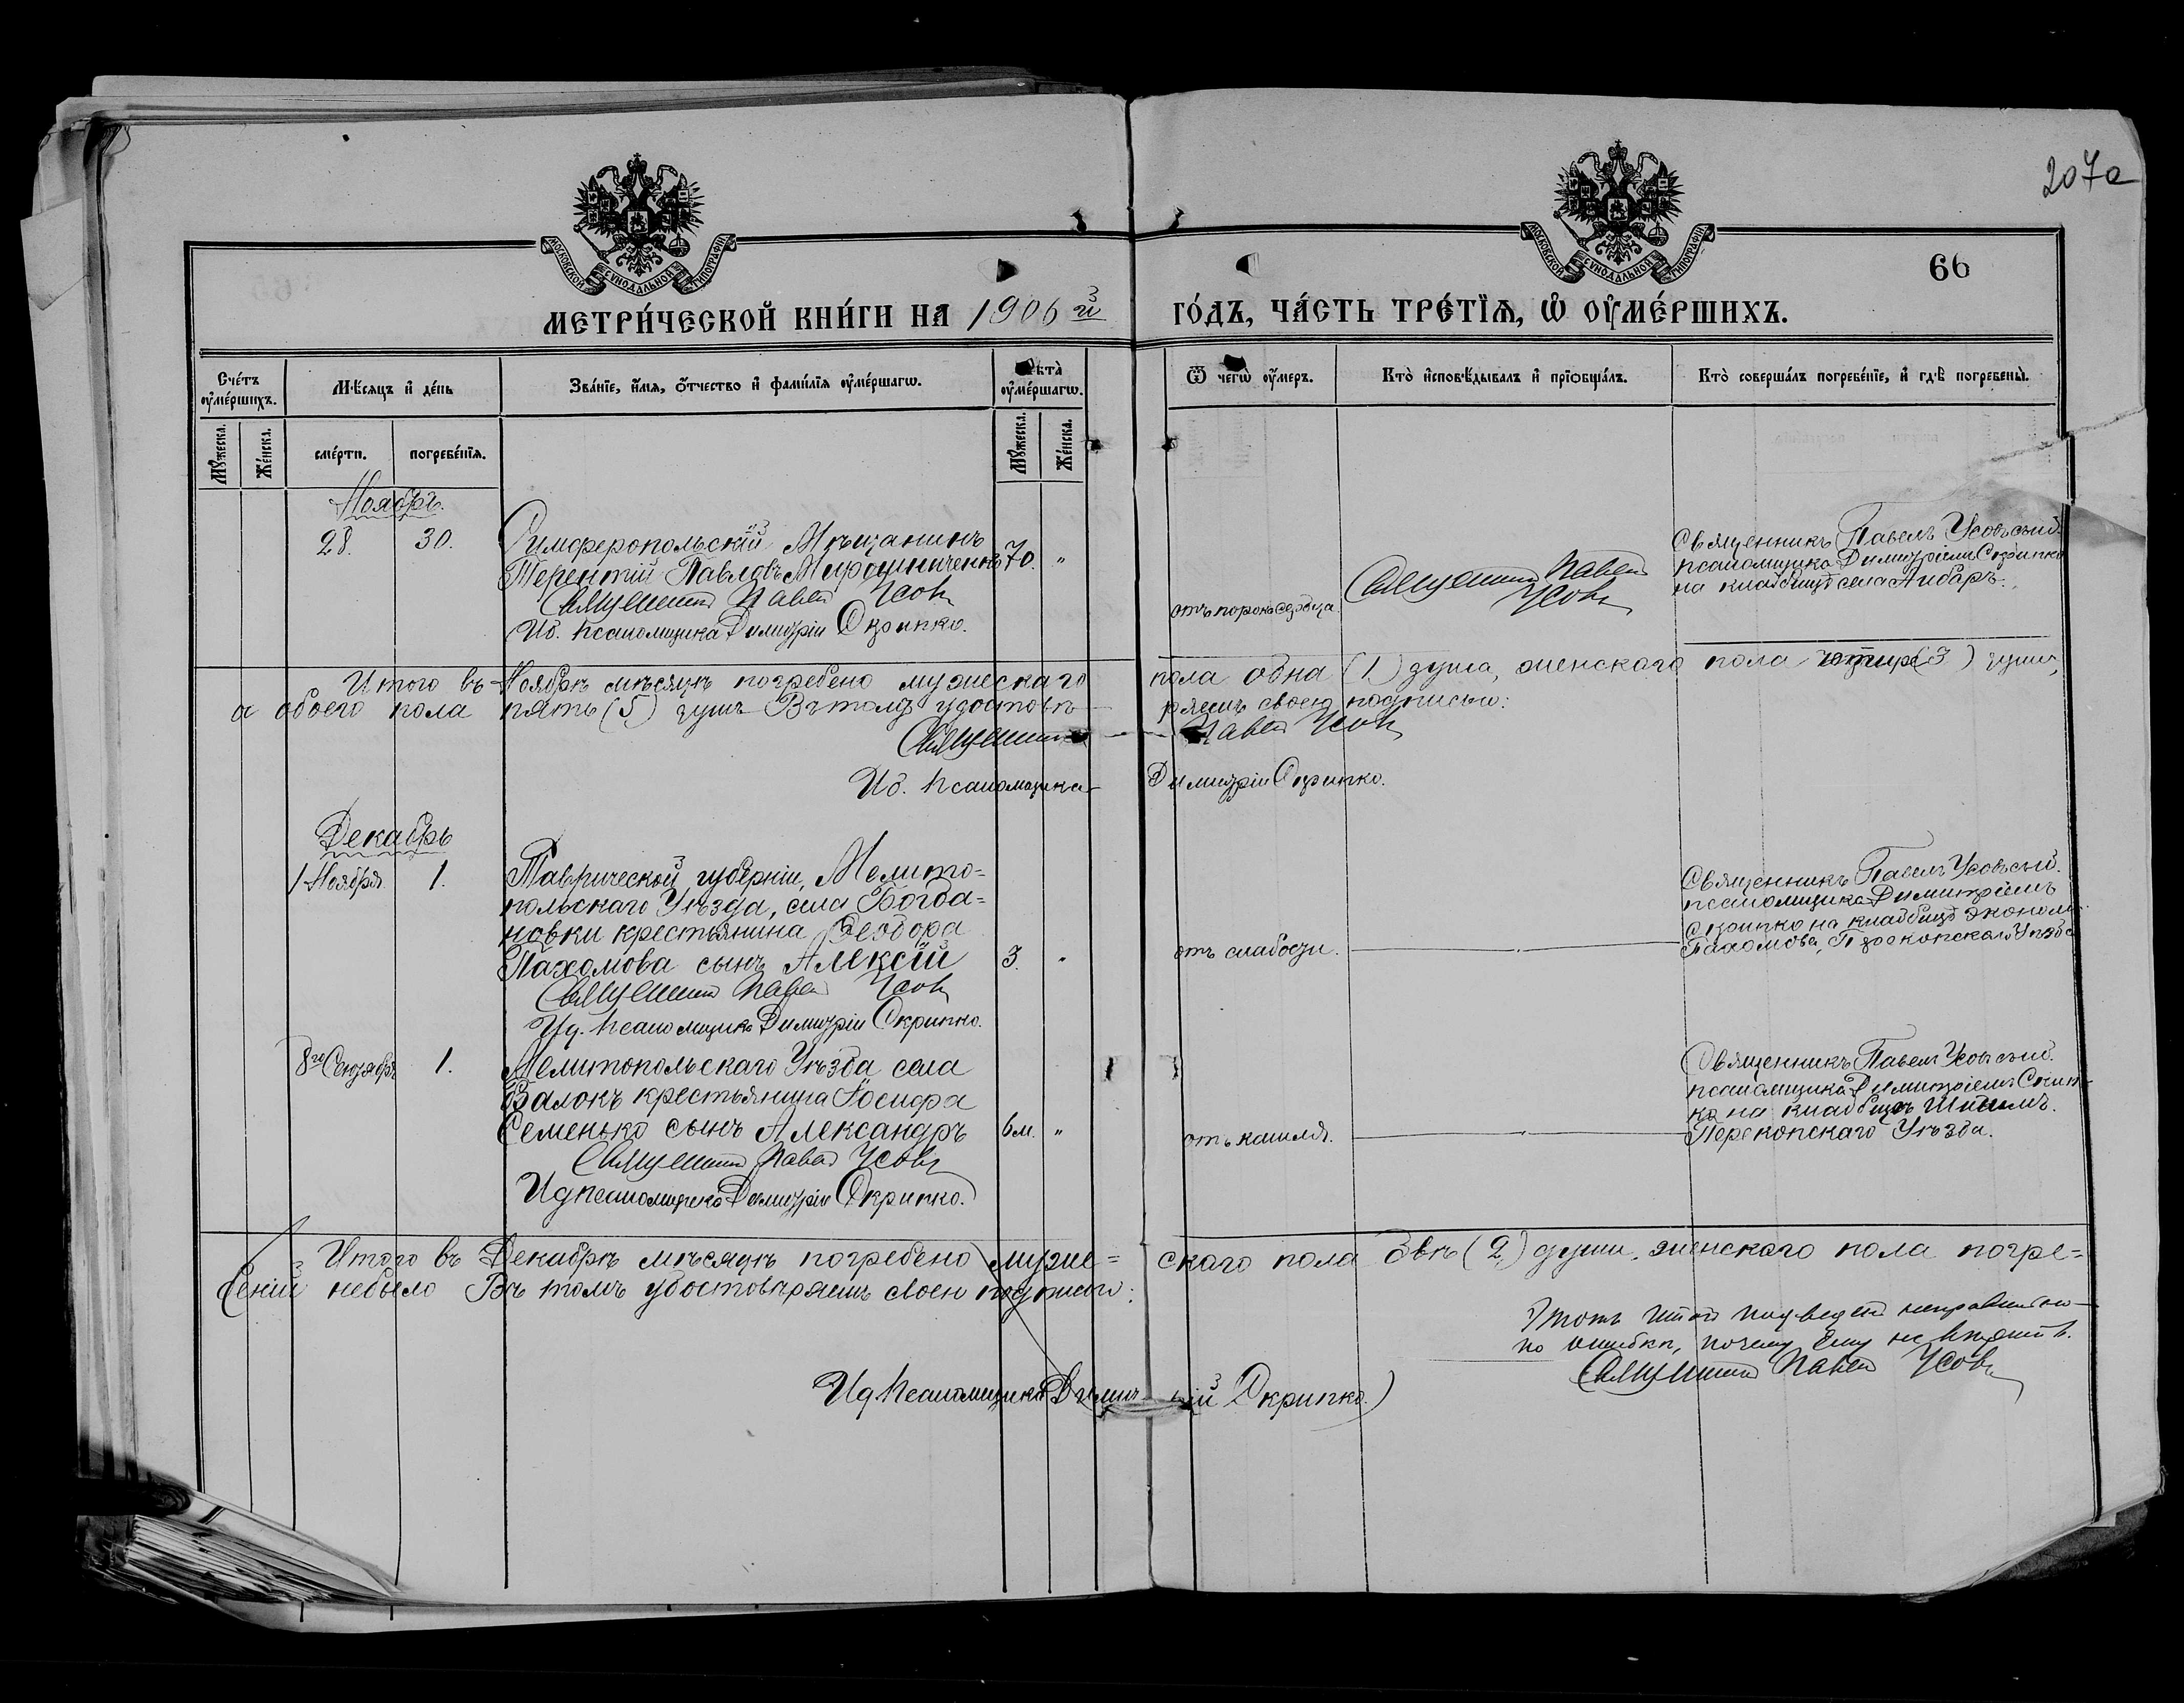 207а
МОСКОВСКОЙ СѴНОДАЛЬНОЙ ТИПОГРАФІИ
МОСКОВСКОЙ СѴНОДАЛЬНОЙ ТИПОГРАФІИ
66
МЕТРИ́ЧЕСКОЙ КНИ́ГИ НА 1906 й ГО́ДЪ, ЧА́СТЬ ТРЕ́ТІѦ, Ѡ҆ ОУ҆МЕ́РШИХЪ.
Сче́тъ оу҆ме́ршихъ.
Мѣ́сѧцъ и҆ де́нь
Зва́нїе, и҆́мѧ, ѻ҆́тчество и҆ фамѝлїѧ оу҆ме́ршагѡ.
Лѣта̀ оу҆ме́ршагѡ.
Ѿ чегѡ̀ оу҆́меръ.
Кто̀ и҆сповѣ́дывалъ и҆ прїѡбща́лъ.
Кто̀ соверша́лъ погребе́нїе, и҆ гдѣ̀ погребены̀.
Мꙋ́жеска.
Же́нска.
сме́рти.
погребе́нїѧ.
Мꙋ́жеска.
Же́нска.
Ноябрь.
28. 30. Симферопольскій Мѣщанинъ
Терентій Павловъ Мирошниченко 70. "
Священникъ Павелъ Усовъ
Ид. псаломщика Димитрій Скрипко.
отъ порока сердца
Священникъ Павелъ
Усовъ
Священникъ Павелъ Усовъ съ ид.
псаломщика Димитріемъ Скрипко
на кладбищѣ села Айбаръ.
Итого въ Ноябрѣ мѣсяцѣ погребено мужескаго пола одна (1) душа, женскаго пола (3) души,
а обоего пола пять (5) душъ Въ томъ удостовѣряемъ своею подписью:
Священникъ Павелъ Усовъ
Ид. псаломщика Димитрій Скрипко.
Декабрь
1 Ноября 1. Таврической губерніи, Мелито=
польскаго Уѣзда, села Богда=
новки крестьянина Ѳеодора
Пахомова сынъ Алексій 3. "
Священникъ Павелъ Усовъ
Ид. псаломщика Димитрій Скрипко.
отъ слабости.
Священникъ Павелъ Усовъ съ ид.
псаломщика Димитріемъ
Скрипко на кладбищѣ эконом.
Пахомова, Перекопскаго Уѣзда
8го Сентября 1. Мелитопольскаго Уѣзда села
Балокъ крестьянина Іосифа
Семенько сынъ Александръ 6 м. "
Священникъ Павелъ Усовъ
Ид псаломщика Димитрій Скрипко.
отъ кашля.
Священникъ Павелъ Усовъ съ ид.
псаломщика Димитріемъ Скрип-
ко на кладбищѣ
Перекопскаго Уѣзда.
Итого въ Декабрѣ мѣсяцѣ погребено муже= скаго пола двѣ (2) души, женскаго пола погре=
беній небыло Въ томъ удостовѣряемъ своею подписью:
Этотъ итогъ подведенъ неправильно
по ошибкѣ, почему ему не вѣрить.
Священникъ Павелъ Усовъ
Ид псаломщика Димитрій Скрипко